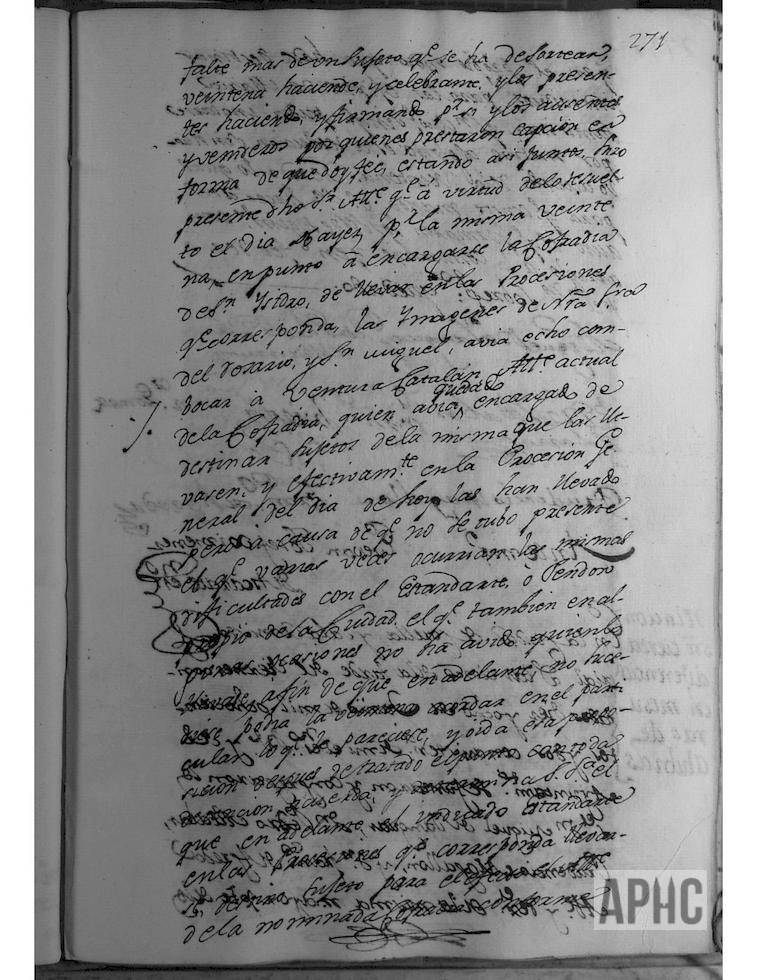 271
falte mas de un Sujeto q.e se ha de Sortear,
veintena haciende, y celebrante, y los presen-
tes haciendo, y firmando p.r si y los ausentes
y venideros por quienes prestaron capcion en
forma de que doy fee, estando asi juntos,
presente dho s.r All.e q.e a virtud de lo resuel-
to el dia de ayer p.r la misma veinte
na, en punto à encargarse la Cofradia
de S.n Ysidro, de llevar en las Procesiones
q.e corresponda, las Ymagenes de Nra Sra
del Rosario, y S.n Miguel, avia echo com-
bocar à Ventura Catalàn All.e actual
de la Cofradia, quien avia quedado encargado de
destinar Sujetos de la misma que las lle-
varen, y efectivam.te en la Procesion Ge-
neral del dia de hoy las han llevado
pero à causa de q.e no se tubo presente
el q.e varias veces ocurrian las mismas
dificultades con el Estandarte, ò Pendon
propio de la Ciudad, el q.e tambien en al-
gunas ocasiones no ha avido quien lo
llevase, afin de que en adelante no suce-
diese, podia la veintena acordar en el parti-
cular lo q.e le pareciese, y oida esta propo-
sicion despues de tratado el punto con toda
que en adelante el indicado Estandarte
en las Procesiones q.e corresponda llevar-
Sujeto para el efecto el All.e
de la nominada Cofradia
APHC